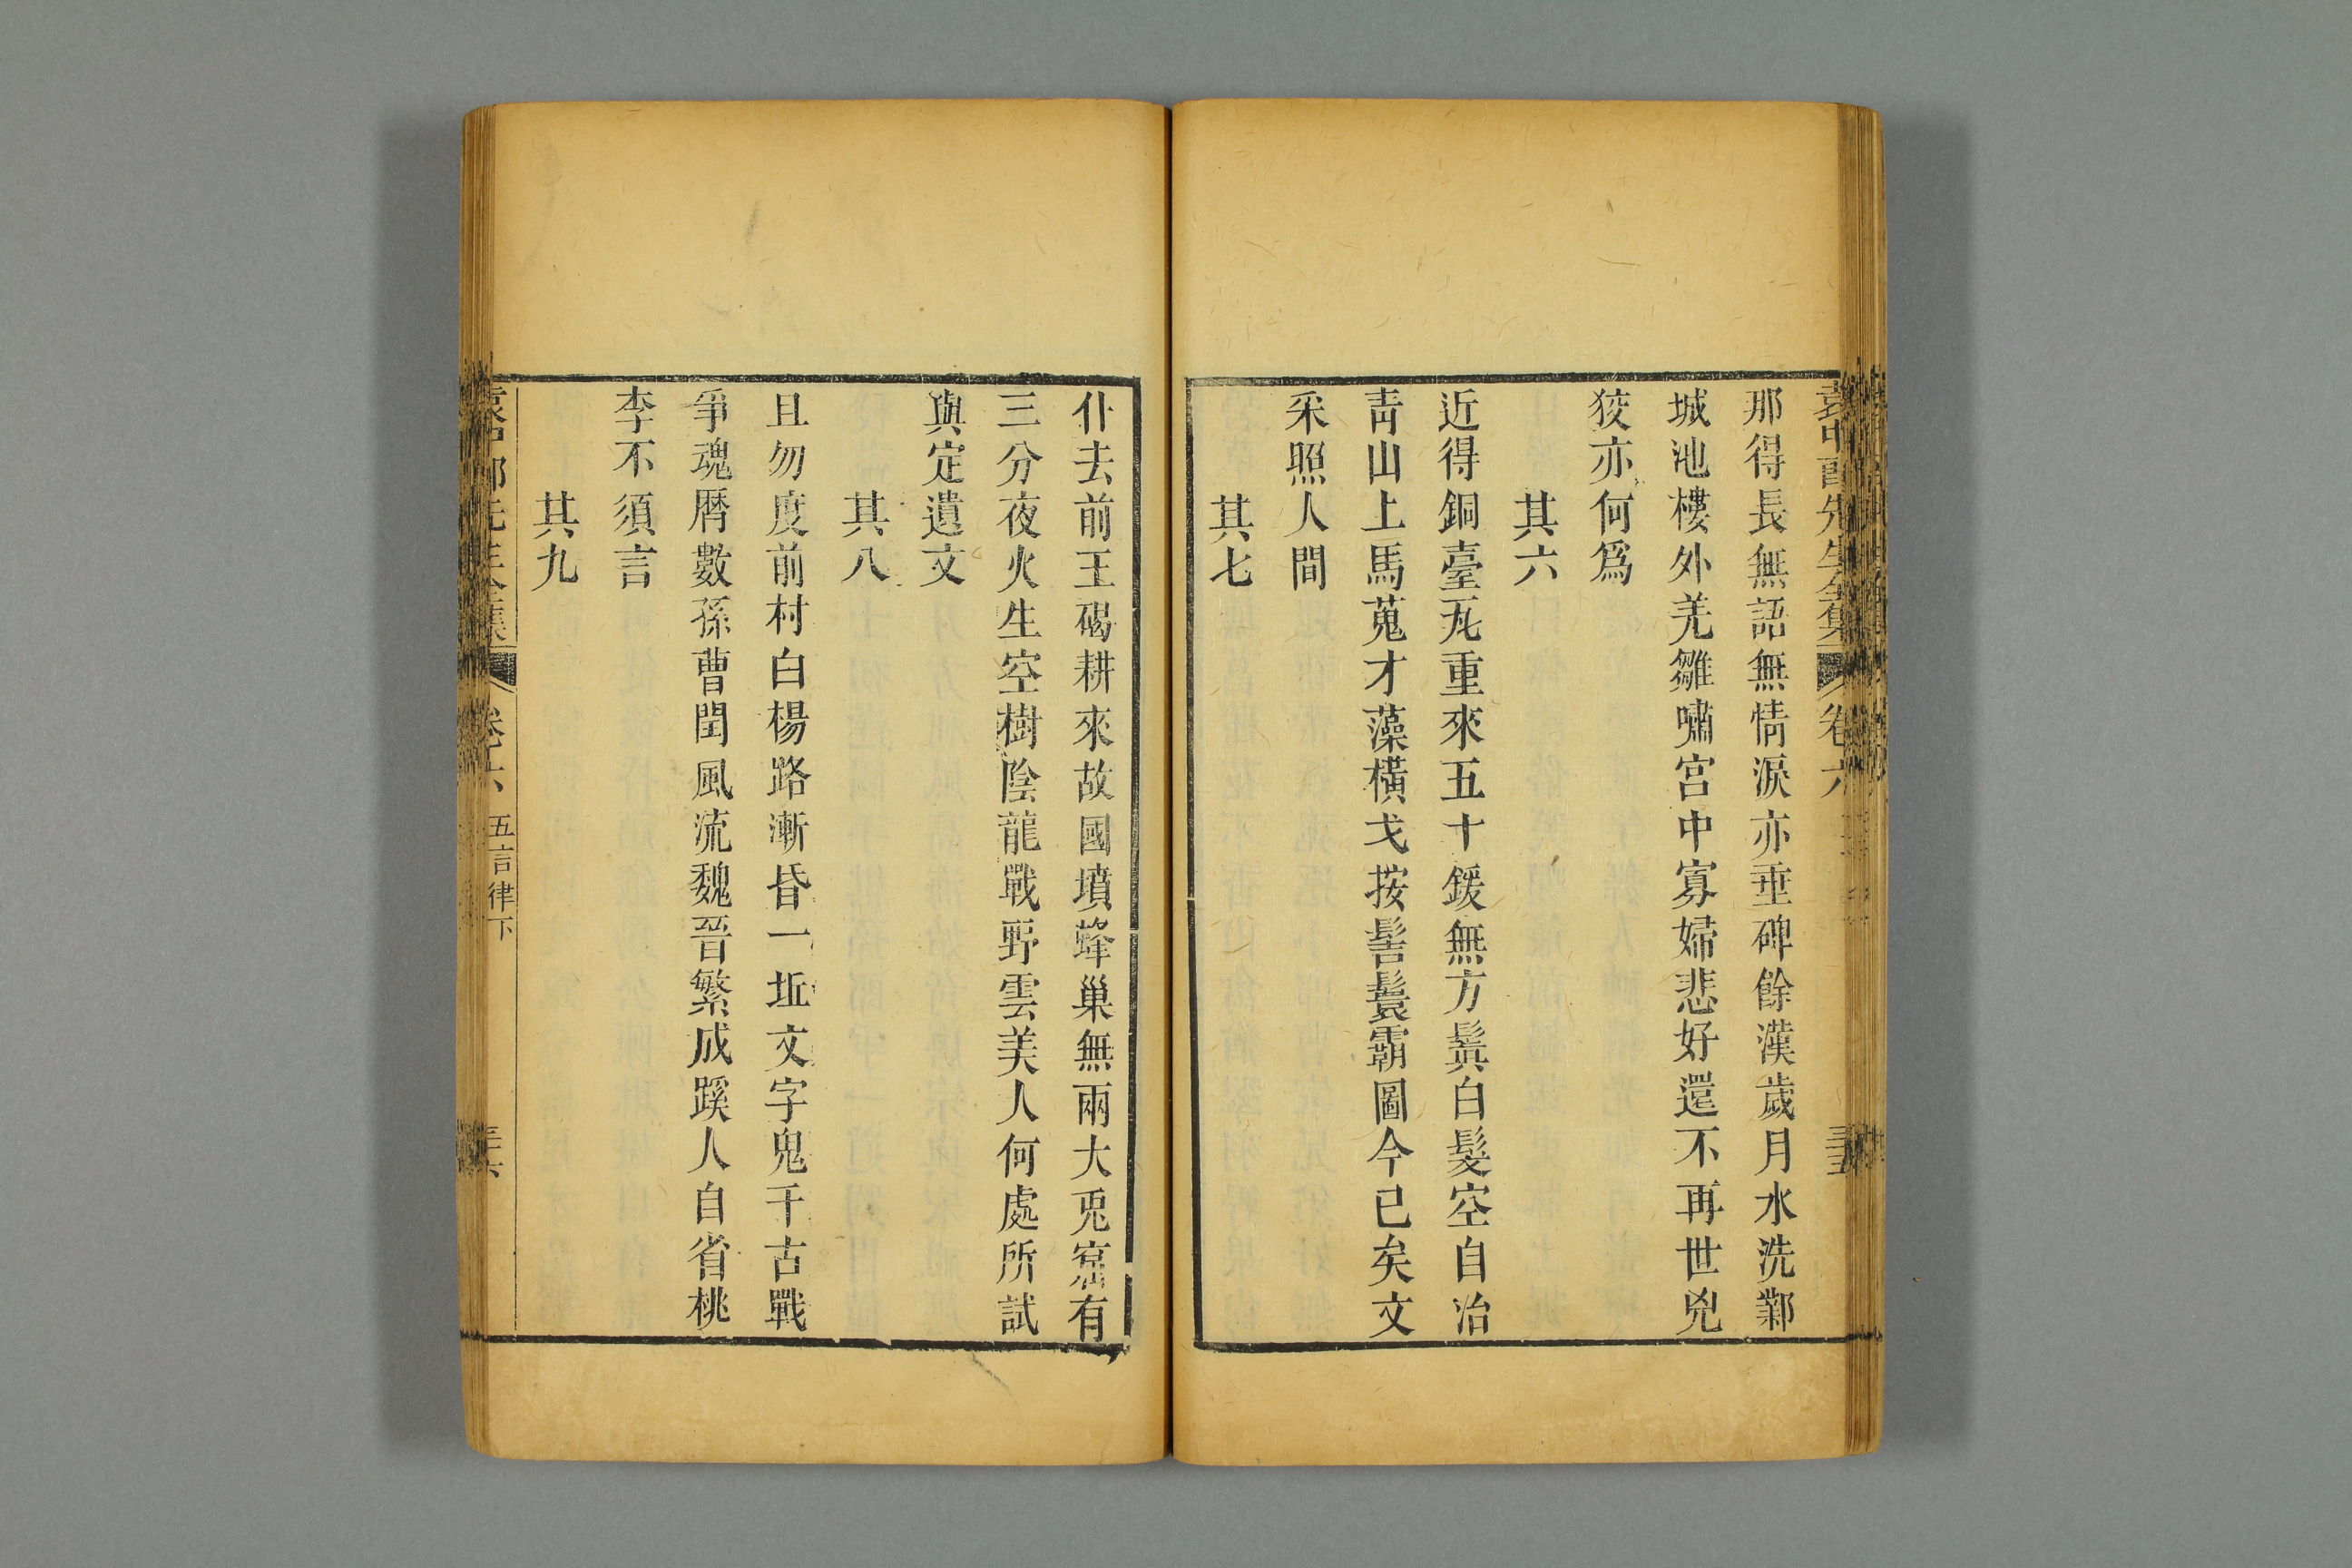 那得長無語無情淚亦垂碑餘漢歲月水洗鄴
城池樓外羌雛嘯宮中寡婦悲好還不再世兇
狡亦何爲
其六
近得銅臺瓦重來五十鍰無方鬒白髮空自冶
靑山上馬蒐才藻橫戈按髻鬟霸圖今已矣文
采照人間
其七
仆去前王碣耕來故國墳蜂巢無兩大兎窟有
三分夜火生空樹陰龍戰野雲美人何處所試
與定遺文
其八
且勿度前村白楊路漸昏一坵文字鬼千古戰
爭魂曆數孫曹閏風流魏晉繁成蹊人自省桃
李不須言
其九
卷六
五言律下